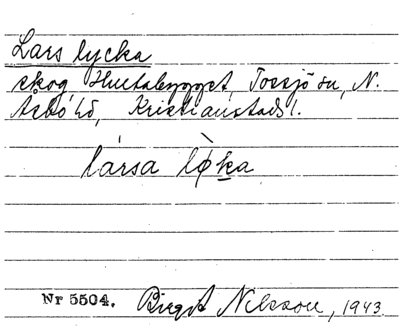 Lars lycka
skog Hultabygget, Tossjö sn, N.
Åsbo hd, Kristianstads l.
lársa lø̀ka
Nr 5504. Birgit Nilsson, 1943